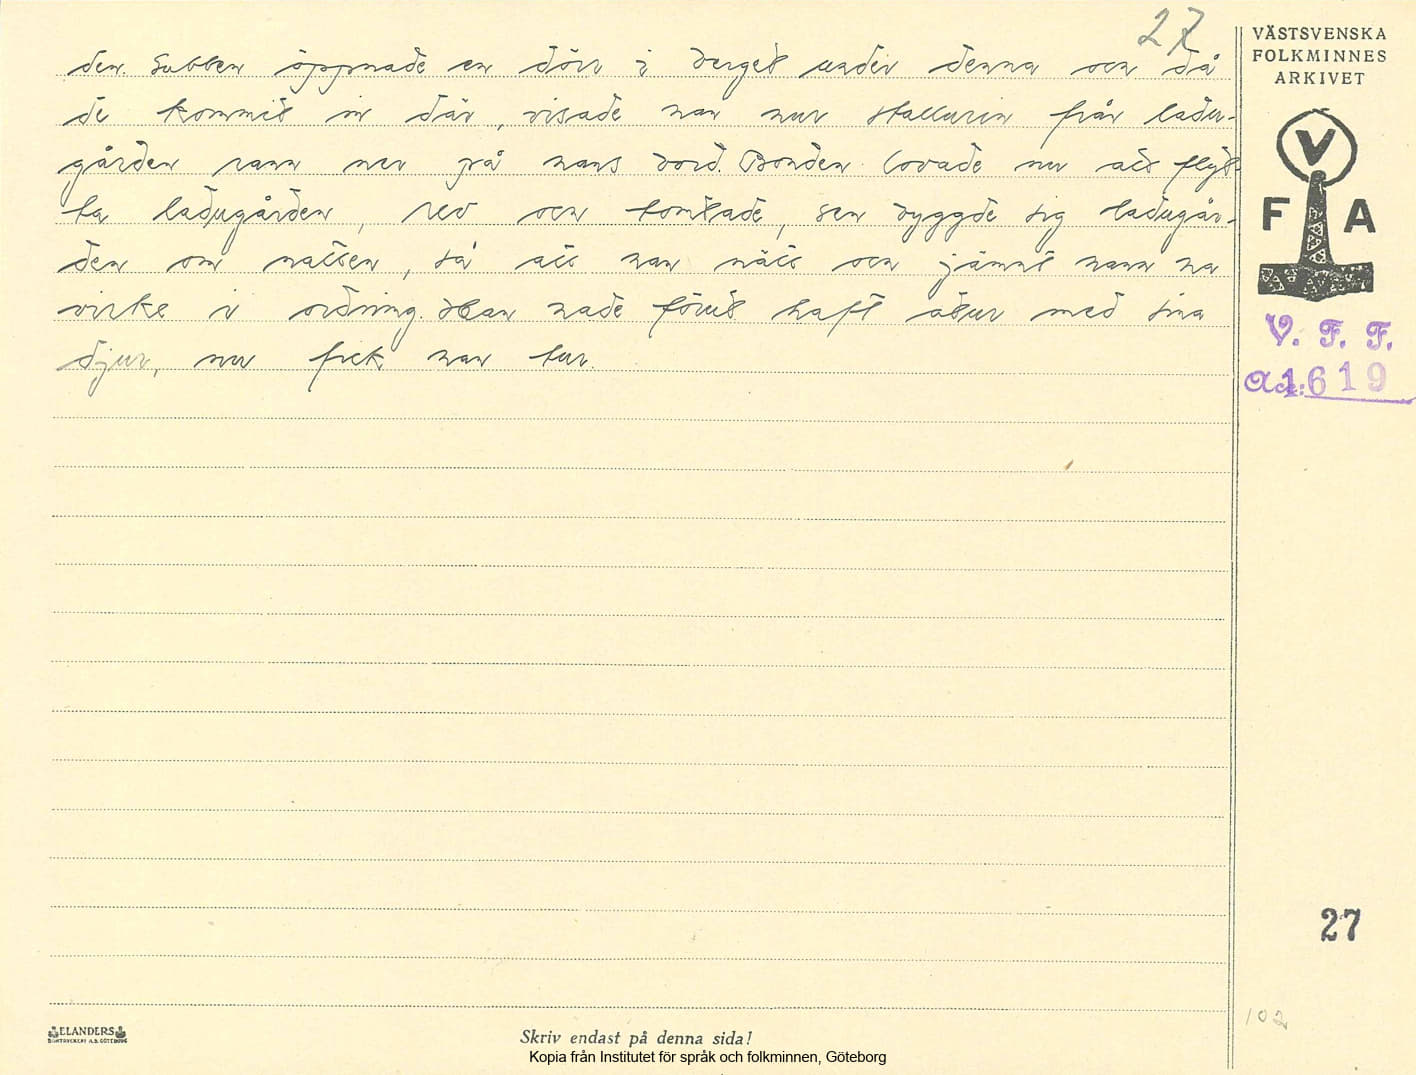 27
den. Gubben öppnade en dörr i berget under denna och då
de kommit in där, visade han hur stallurin från ladu-
gården rann ner på hans bord. Bonden lovade nu att flyt-
ta ladugården, rev och tomtade, sen byggde sig ladugår-
den om natten, så att han nätt och jämnt hann ha
virke i ordning. Han hade förut haft otur med sina
djur, nu fick han tur.
VÄSTSVENSKA
FOLKMINNES
ARKIVET
V
F A
V. F. F.
Acc: 1619
27
102
ELANDERS
BOKTRYCKERI A.B. GÖTEBORG
Skriv endast på denna sida!
Kopia från Institutet för språk och folkminnen, Göteborg